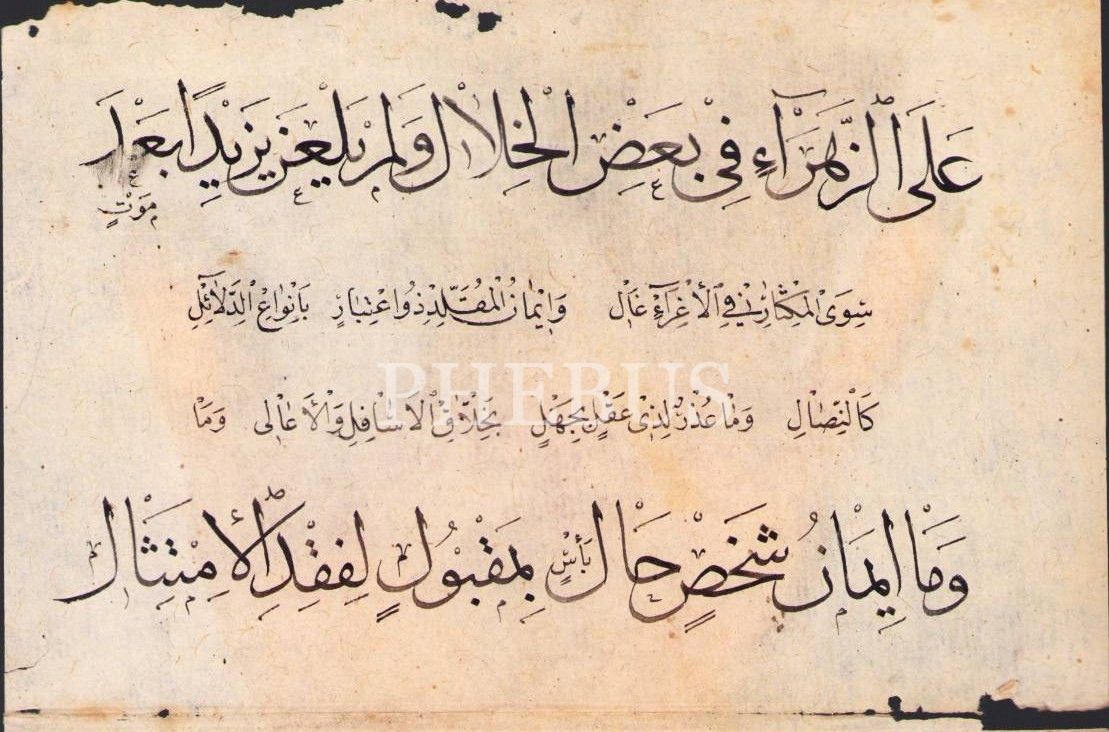 عَلَى الزَّهْرَآءِ فِيْ بَعْضِ الْخِلَالِ وَلَمْ يَلْعَنْ يَزِيْدًا بَعْدَ
مَوْتٍ
سِوَى الْمِكْثَارِ فِي الْاِغْرَآءِ غَالِ وَاِيْمَانُ الْمُقَلِّدِ ذُو اعْتِبَارٍ بِاَنْوَاعِ الدَّلَآئِلِ
PHEBUS
كَالنِّصَالِ وَمَا عُذْرٌ لِذِيْ عَقْلٍ بِجَهْلٍ بِخَلَّاقِ الْاَسَافِلِ وَالْاَعَالِى وَمَا
وَمَا اِيْمَانُ شَخْصٍ حَالَ بَأْسٍ بِمَقْبُوْلٍ لِفَقْدِ الْاِمْتِثَالِ